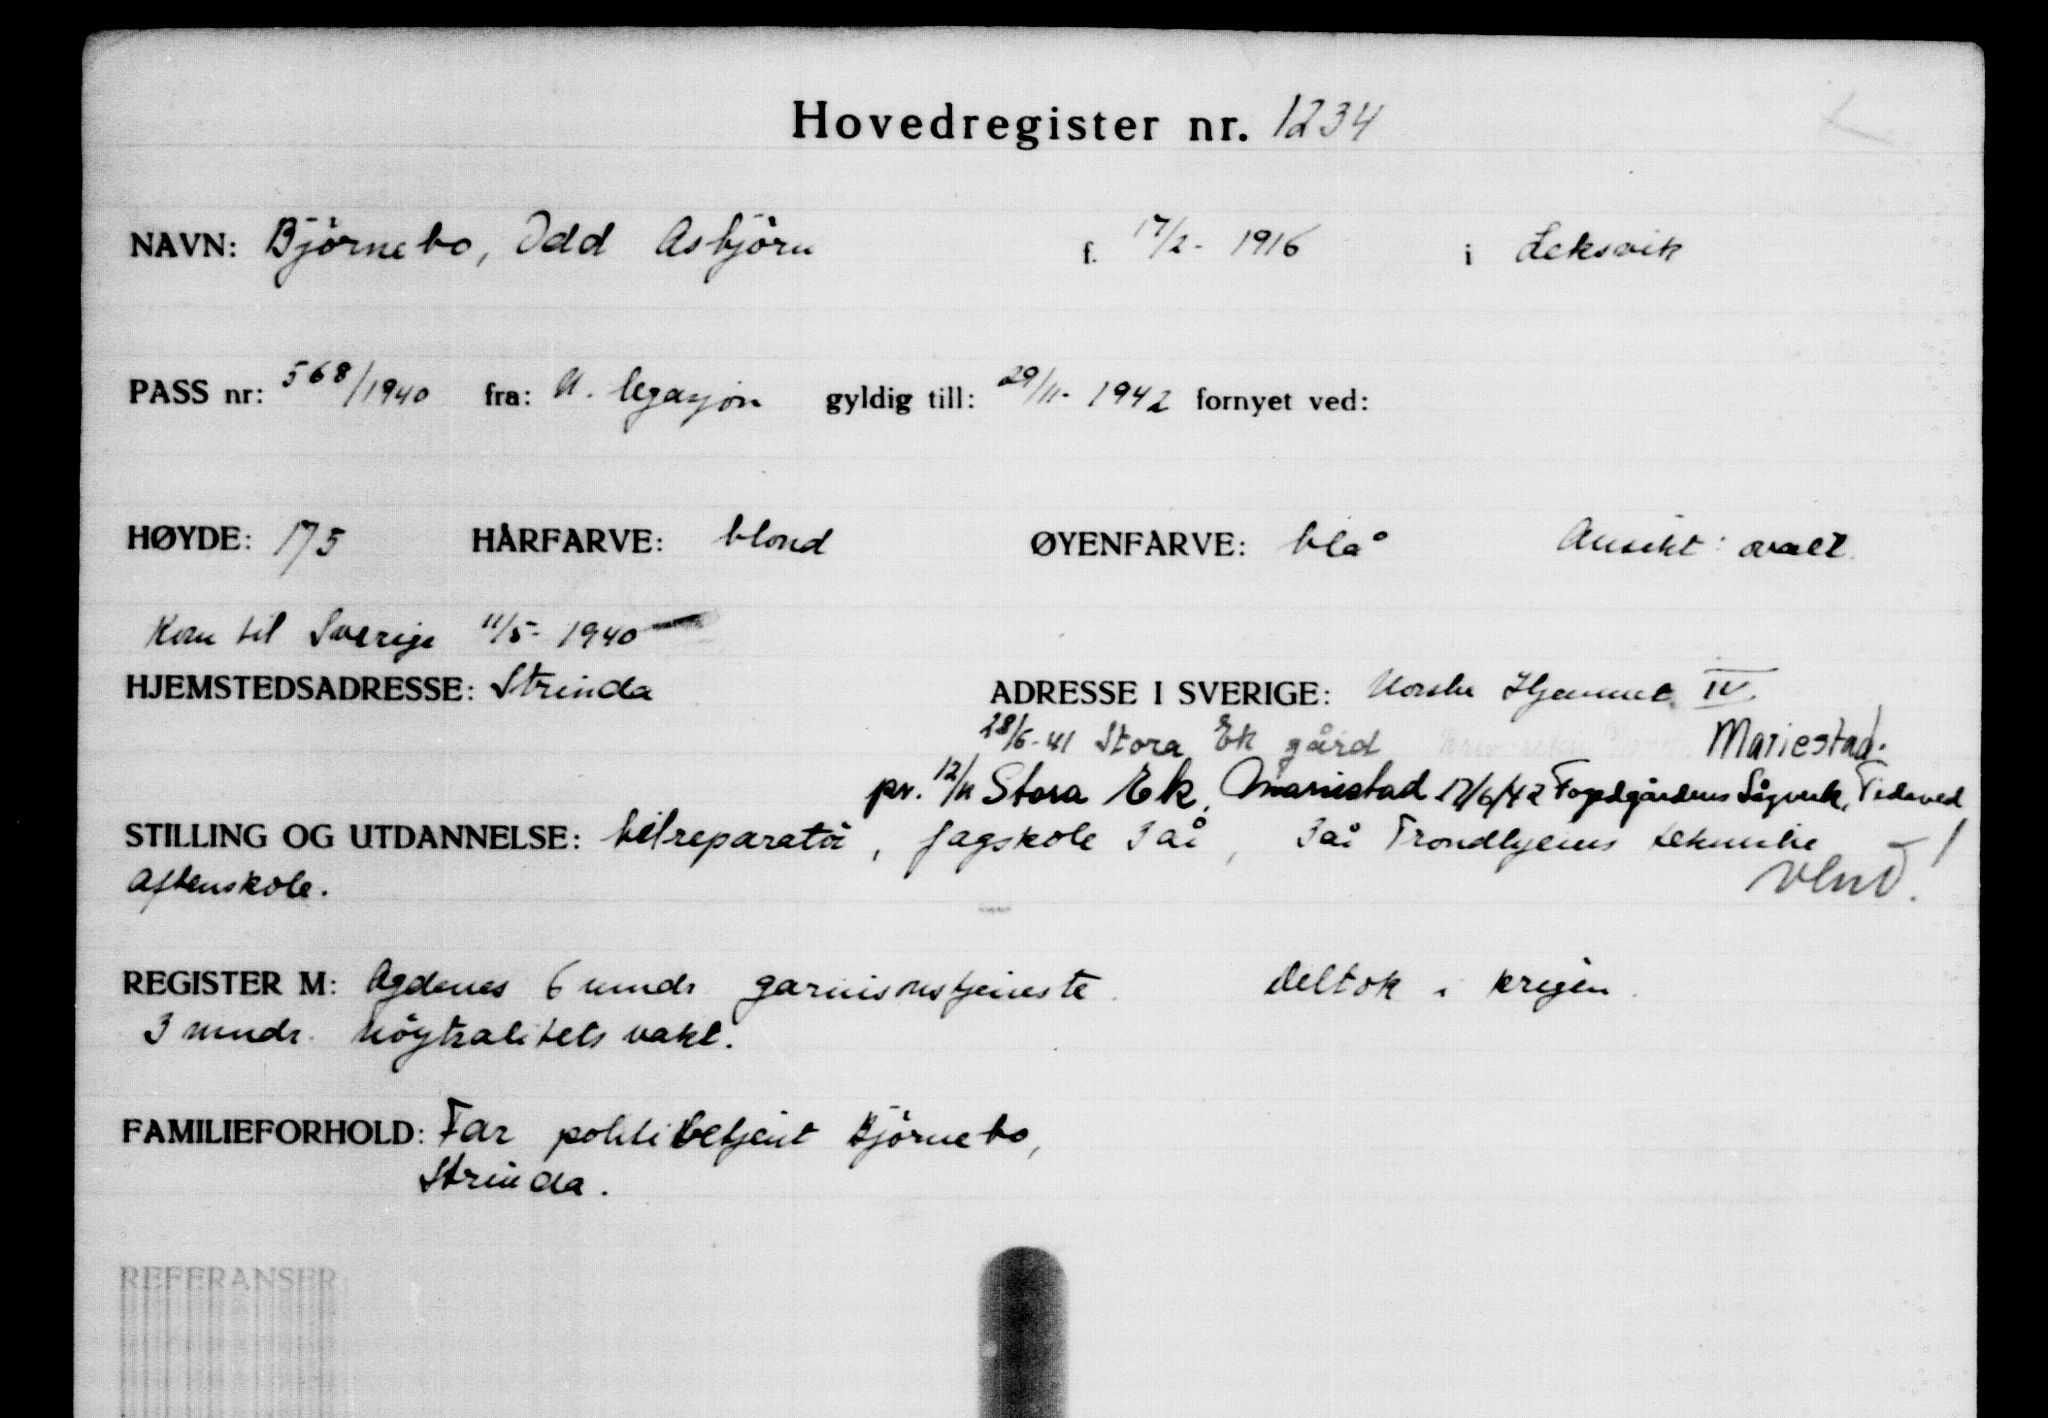 Hovedregister nr. 1234
NAVN: Björnebo, Odd Asbjörn f. 17/2- 1916 i Leksvik
PASS nr: 568/1940 fra: N. legasjon gyldig till: 29/11- 1942 fornyet ved:
HØYDE: 175 HÅRFARVE: blond ØYENFARVE: blå Ansikt: ovalt.
Kom til Sverige 11/5- 1940
HJEMSTEDSADRESSE: Strinda ADRESSE I SVERIGE: Norske Hjemmet IV.
28/6-41 Stora Ek gård Mariestad.
pr. 12/11 Stora Ek, Mariestad 17/6/42 Fogdgårdens Sågverk, Tidaved
STILLING OG UTDANNELSE: bilreparatör, fagskole 3 år, 3 år Trondhjems tekniske
Aftenskole.
REGISTER M: Agdenes 6 mndr garnisonstjeneste. Deltok i krigen.
3 mndr. nöytralitets vakt.
FAMILIEFORHOLD: Far politibetjent Björnebo,
Strinda.
REFERANSER: